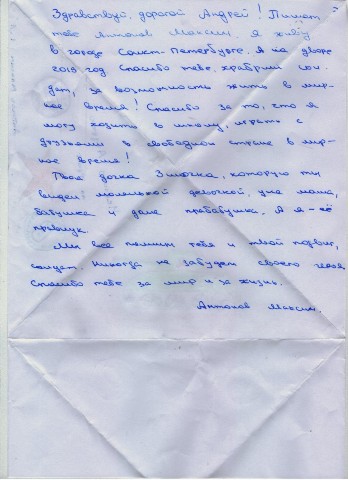 Здравствуй, дорогой Андрей! Пишет
тебе Антонов Максим. Я живу
в городе Санкт-Петербурге. А на дворе
2019 год. Спасибо тебе, храбрый сол-
дат, за возможность жить в мир-
ное время! Спасибо за то, что я
могу ходить в школу, играть с
друзьями в свободной стране в мир-
ное время!
Твоя дочка Эмочка, которую ты
видел маленькой девочкой, уже мама,
бабушка и даже прабабушка. А я - её
правнук
Мы все помним тебя и твой подвиг,
солдат. Никогда не забудем своего героя.
Спасибо тебе за мир и за жизнь.
Антонов Максим.